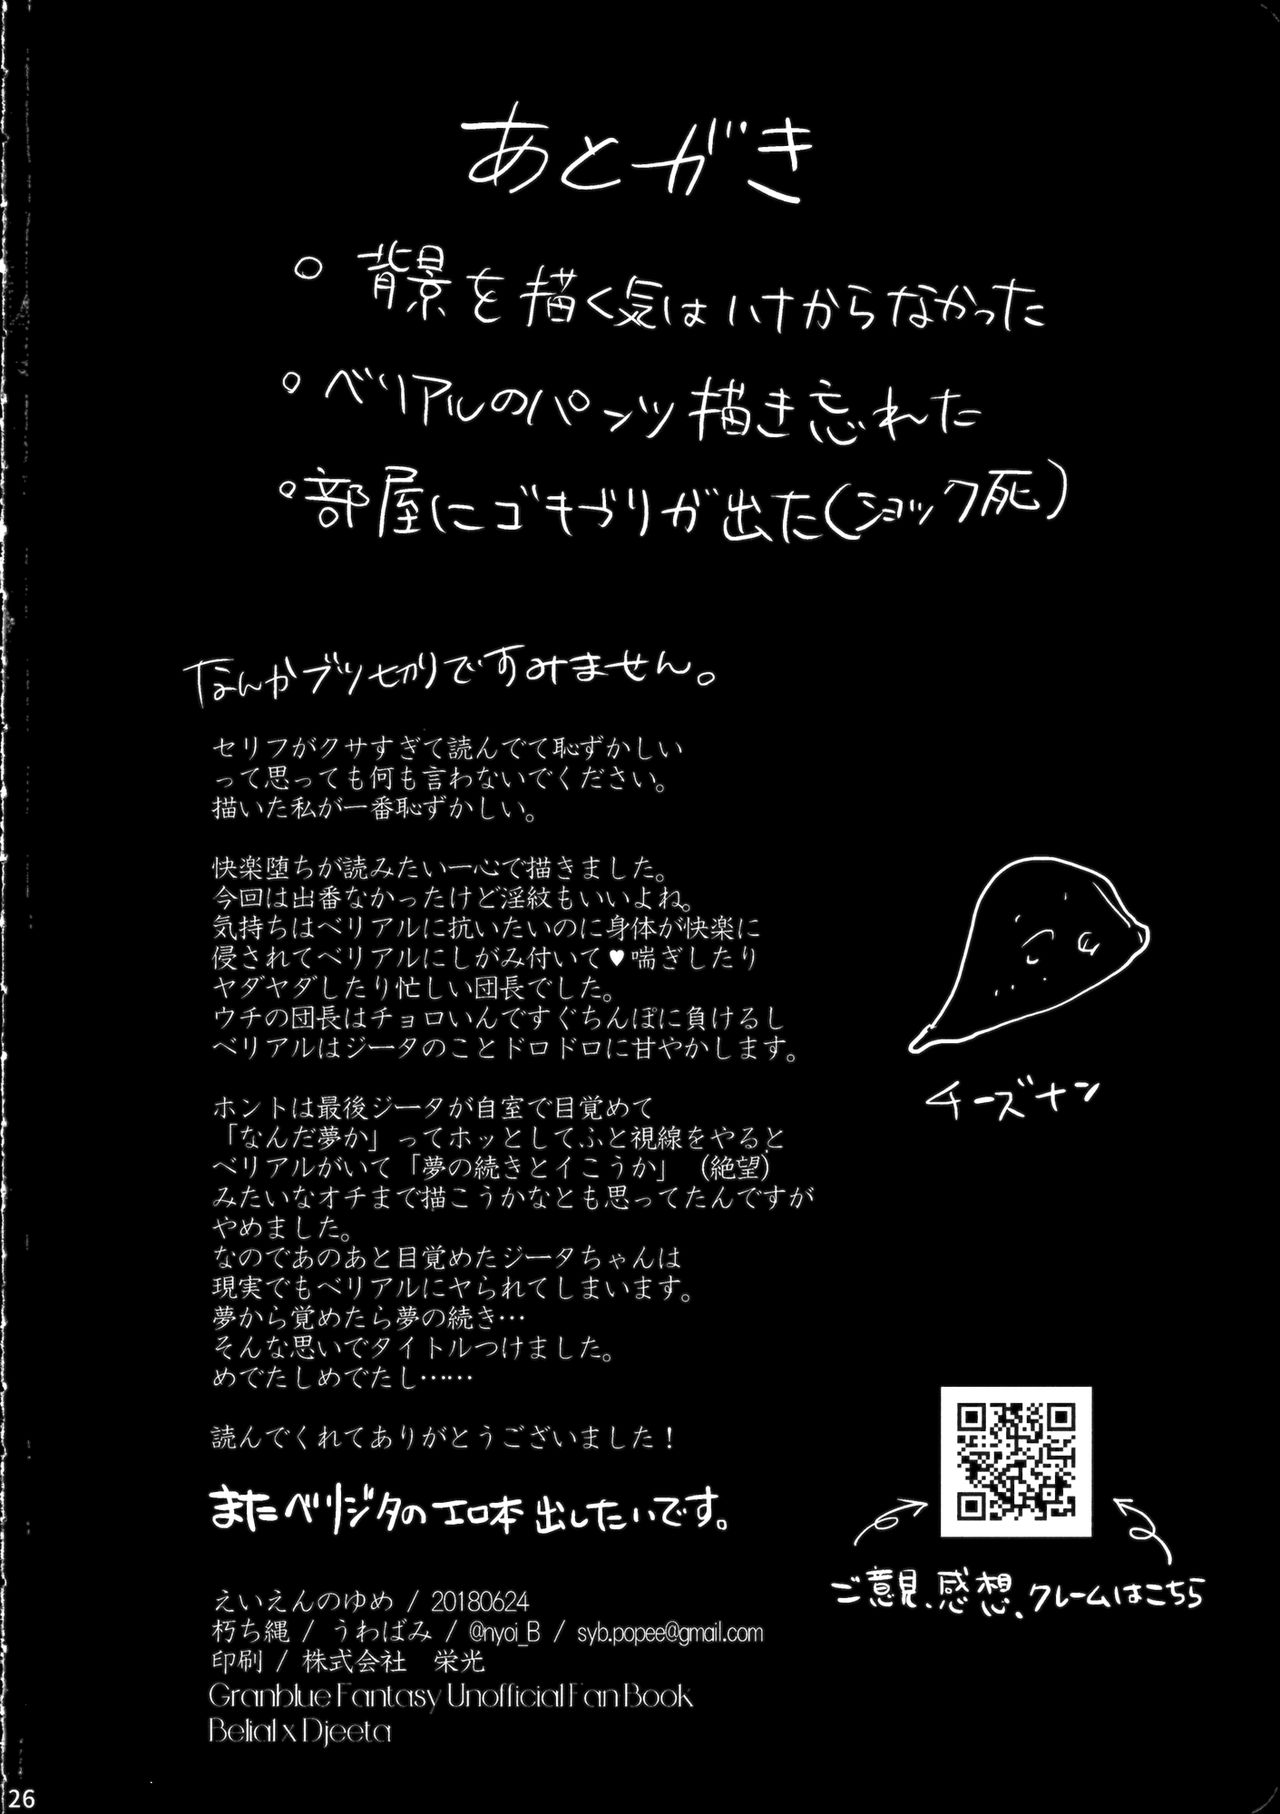 あとがき
○ 背景を描く気はハナからなかった
○ ベリアルのパンツ描き忘れた
○ 部屋にゴキブリが出た(ショック死)
なんかブツ切りですみません。
セリフがクサすぎて読んでて恥ずかしい
って思っても何も言わないでください。
描いた私が一番恥ずかしい。
快楽堕ちが読みたい一心で描きました。
今回は出番なかったけど淫紋もいいよね。
気持ちはベリアルに抗いたいのに身体が快楽に
侵されてベリアルにしがみ付いて♥喘ぎしたり
ヤダヤダしたり忙しい団長でした。
ウチの団長はチョロいんですぐちんぽに負けるし
ベリアルはジータのことドロドロに甘やかします。
ホントは最後ジータが自室で目覚めて
「なんだ夢か」ってホッとしてふと視線をやると
ベリアルがいて「夢の続きとイこうか」（絶望）
みたいなオチまで描こうかなとも思ってたんですが
やめました。
なのであのあと目覚めたジータちゃんは
現実でもベリアルにヤられてしまいます。
夢から覚めたら夢の続き…
そんな思いでタイトルつけました。
めでたしめでたし……
読んでくれてありがとうございました！
またベリジタのエロ本出したいです。
チーズナン
ご意見、感想、クレームはこちら
えいえんのゆめ / 20180624
朽ち縄 / うわばみ / @nyoi_B / syb.popee@gmail.com
印刷 / 株式会社　栄光
Granblue Fantasy Unofficial Fan Book
Belial x Djeeta
26